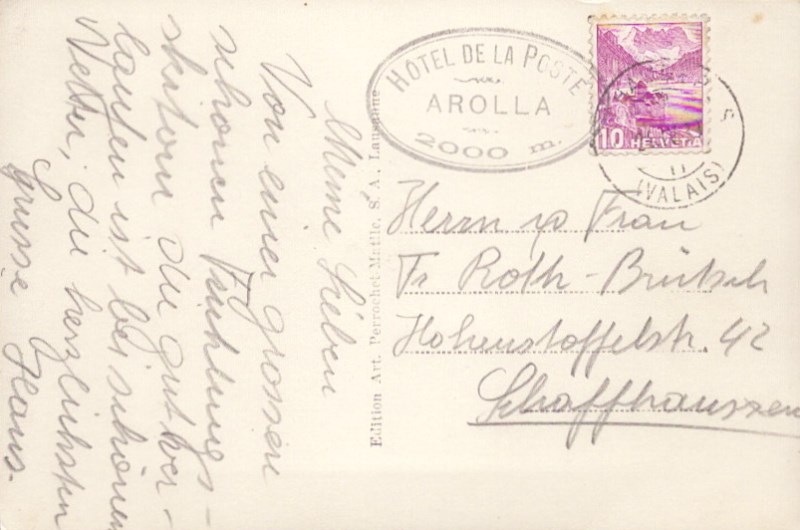 Meine Lieben
Von einer grossen
schönen Frühlings-
skitour die gut ver-
laufen ist bei schönem
Wetter, die herzlichsten
Grüsse
Hans.
Edition Art. Perrochet-Matile, S. A., Lausanne
HÔTEL DE LA POSTE
AROLLA
2000 m.
10 HELVETIA
(VALAIS)
Herrn u Frau
Fr Roth-Brütsch
Hohenstoffelstr. 42
Schaffhausen